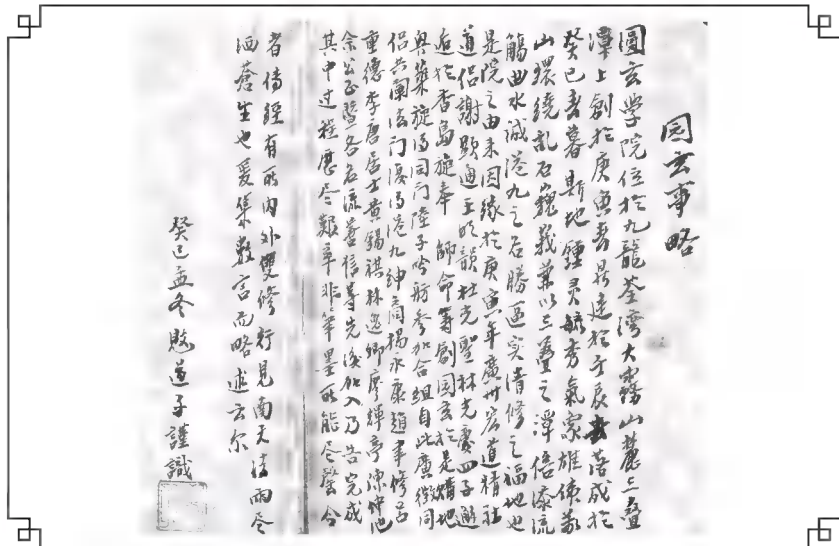 园玄事略
圓玄学院位於九龍荃灣大霧山麓三疊
潭上創於庚寅春昇建於壬辰 落成於
癸巳春暮斯地鍾灵毓秀氣象雄偉羣
山環繞乱石巍峩兼以三疊之潭倍添流
觴曲水誠港九之名勝逼实清修之福地也
是院之由来因缘於庚寅年廣州宏道精社
道侣謝顯通王明韻杜光聖林光慶四子避
迹於香島旋奉 師命籌創园玄於是精地
興築旋得同門陸子吟舫参加合組自此廣徵同
侣共闡法门優得港九绅商楊永康趙聿修吕
重德李唐居士黄錫祺林遜卿廖輝亭陳仲池
余公正暨各名流善信等先後加入乃告完成
其中过程歷尽艱辛非筆墨所能尽罄今
者传經有所内外雙修行見南天法雨尽
洒蒼生也爰集数言而略述云尔
癸巳孟冬 道子謹識